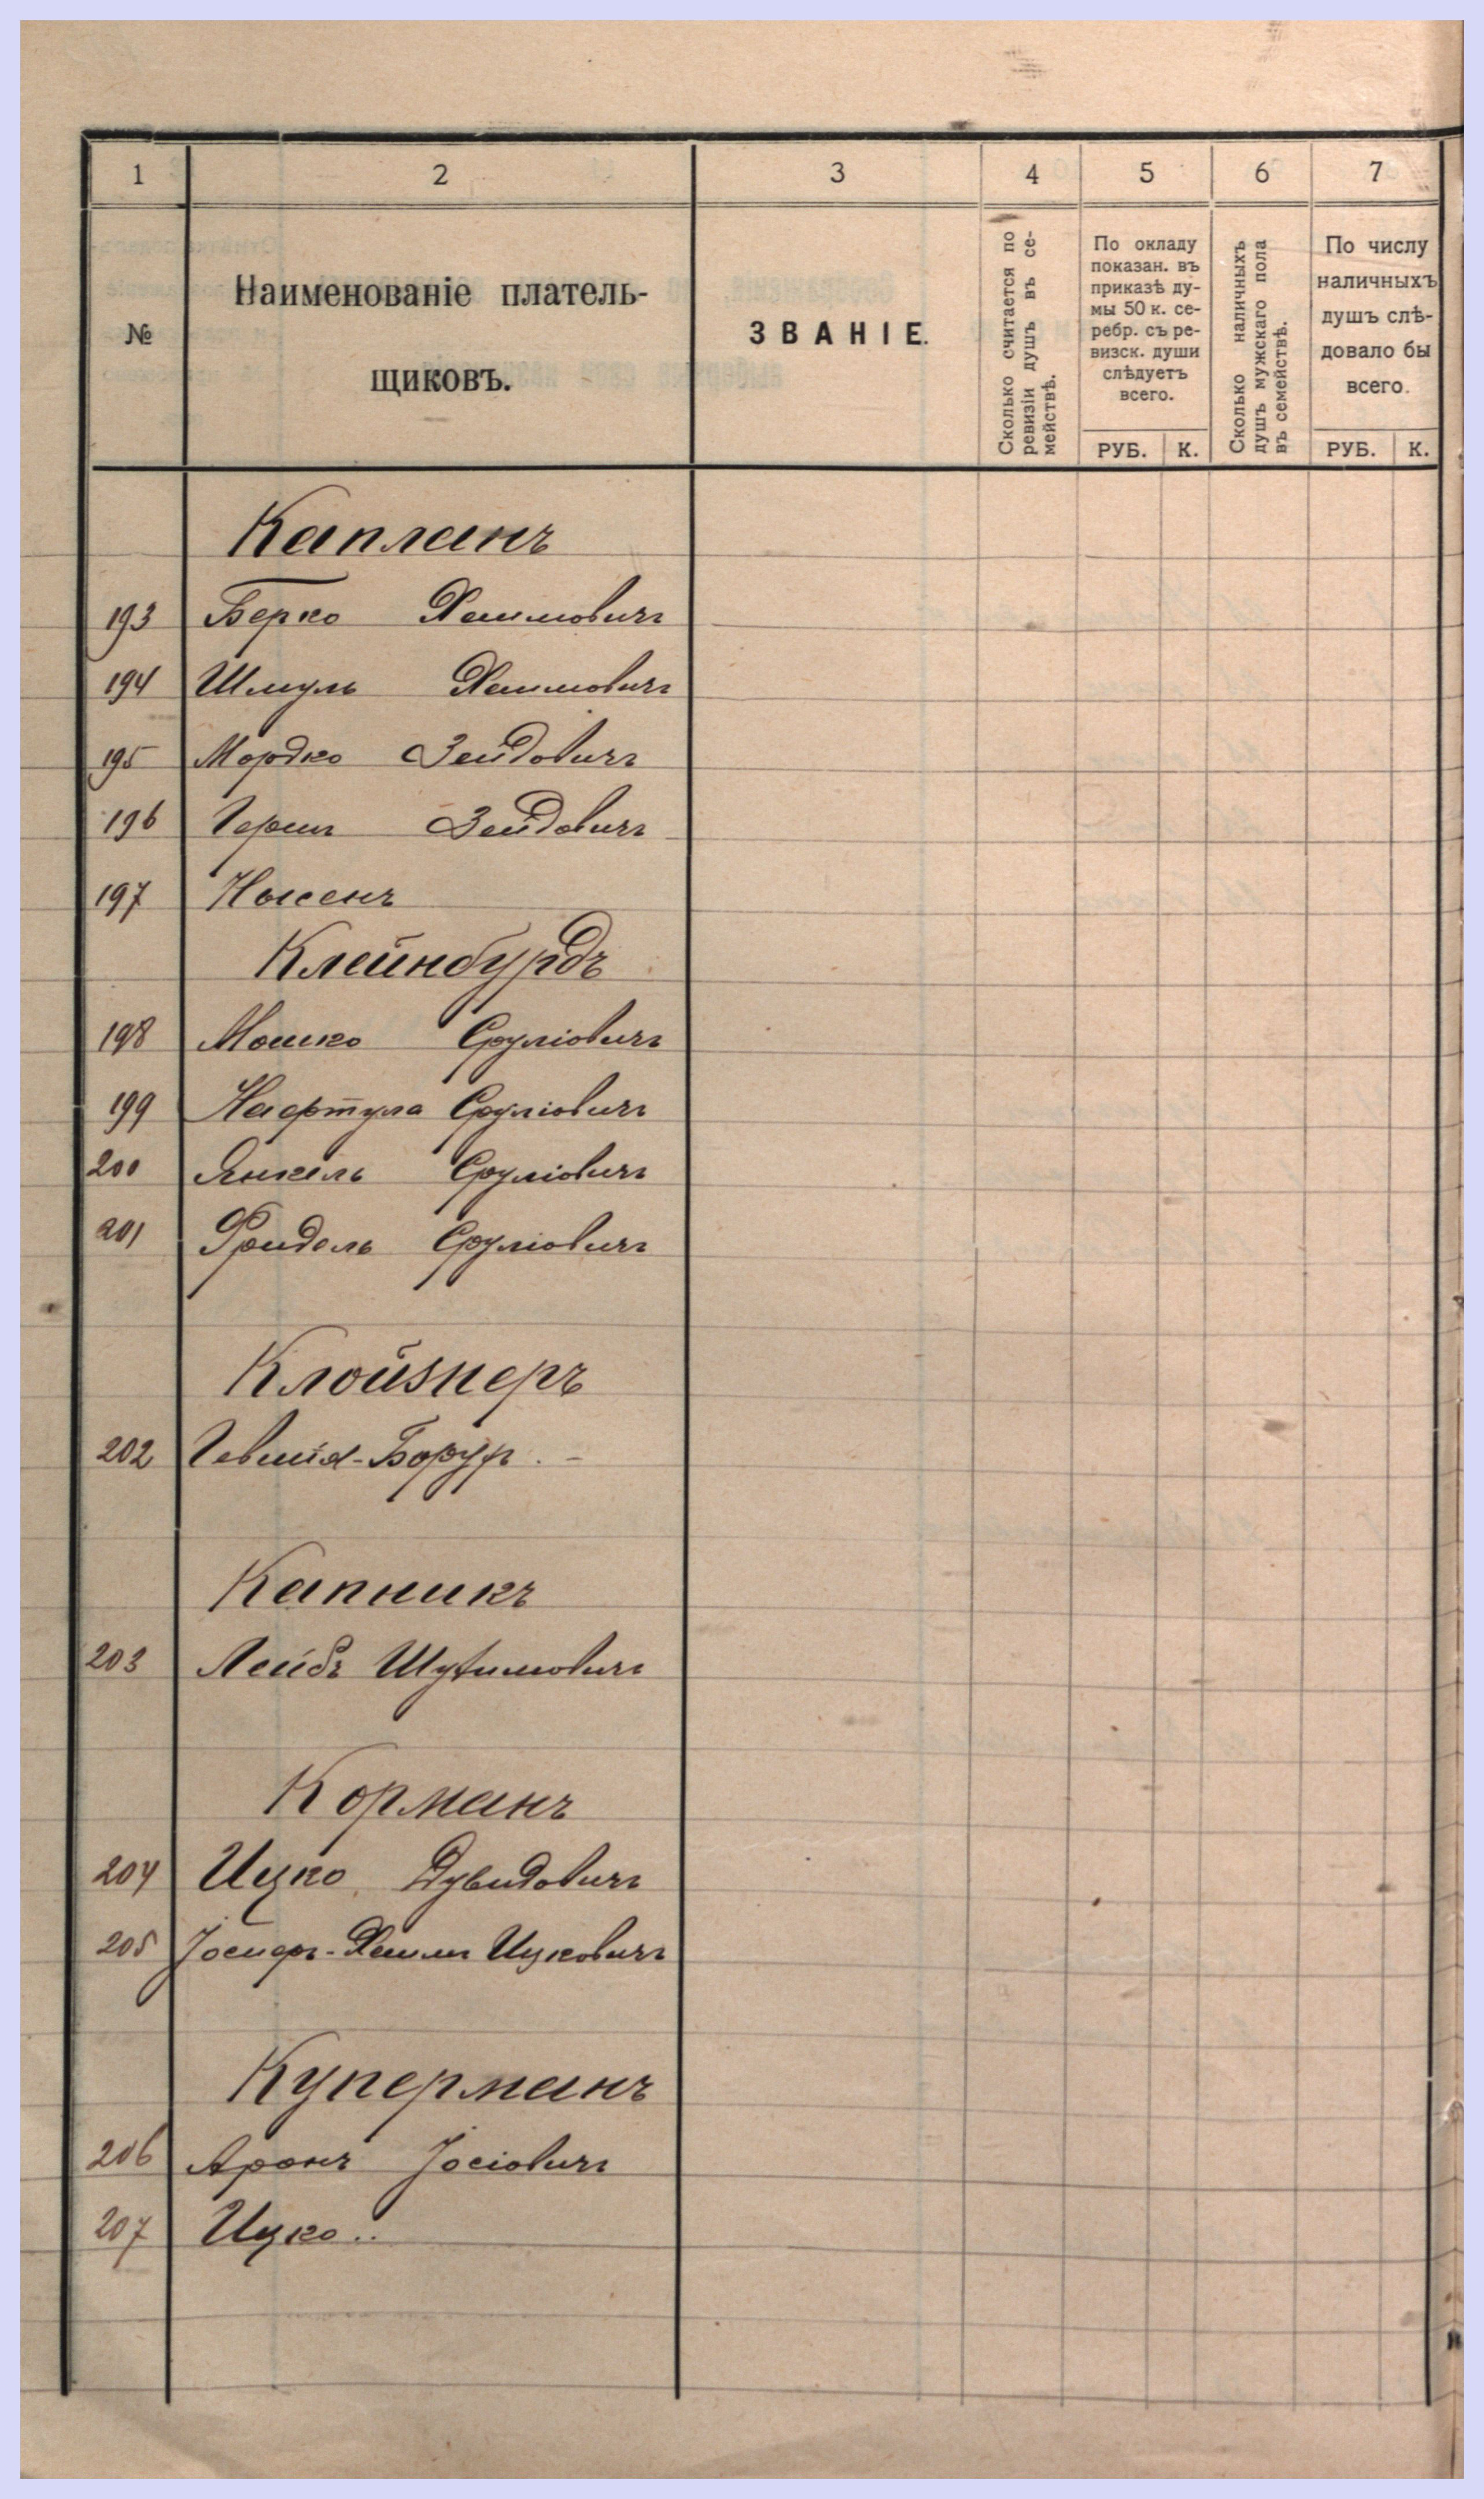 1 2 3 4 5 6 7
№
Наименованіе платель-
щиковъ.
ЗВАНІЕ.
Сколько считается по
ревизіи душъ въ се-
мействѣ.
По окладу
показан. въ
приказѣ ду-
мы 50 к. се-
ребр. съ ре-
визск. души
слѣдуетъ
всего.
РУБ. К.
Сколько наличныхъ
душъ мужскаго пола
въ семействѣ.
По числу
наличныхъ
душъ слѣ-
довало бы
всего.
РУБ. К.
Капланъ
193 Берко Хаимовичъ
194 Шмуль Хаимовичъ
195 Мордко Зейдовичъ
196 Гершъ Зейдовичъ
197 Нысенъ
Клейнбурдъ
198 Мошко Сруліовичъ
199 Нафтула Сруліовичъ
200 Янкель Сруліовичъ
201 Фридель Сруліовичъ
Клойзнеръ
202
Капникъ
203 Лейбъ
Корманъ
204 Ицко Дувидовичъ
205 Іосифъ-Хаимъ Ицковичъ
Куперманъ
206 Аронъ Іосіовичъ
207 Ицко..